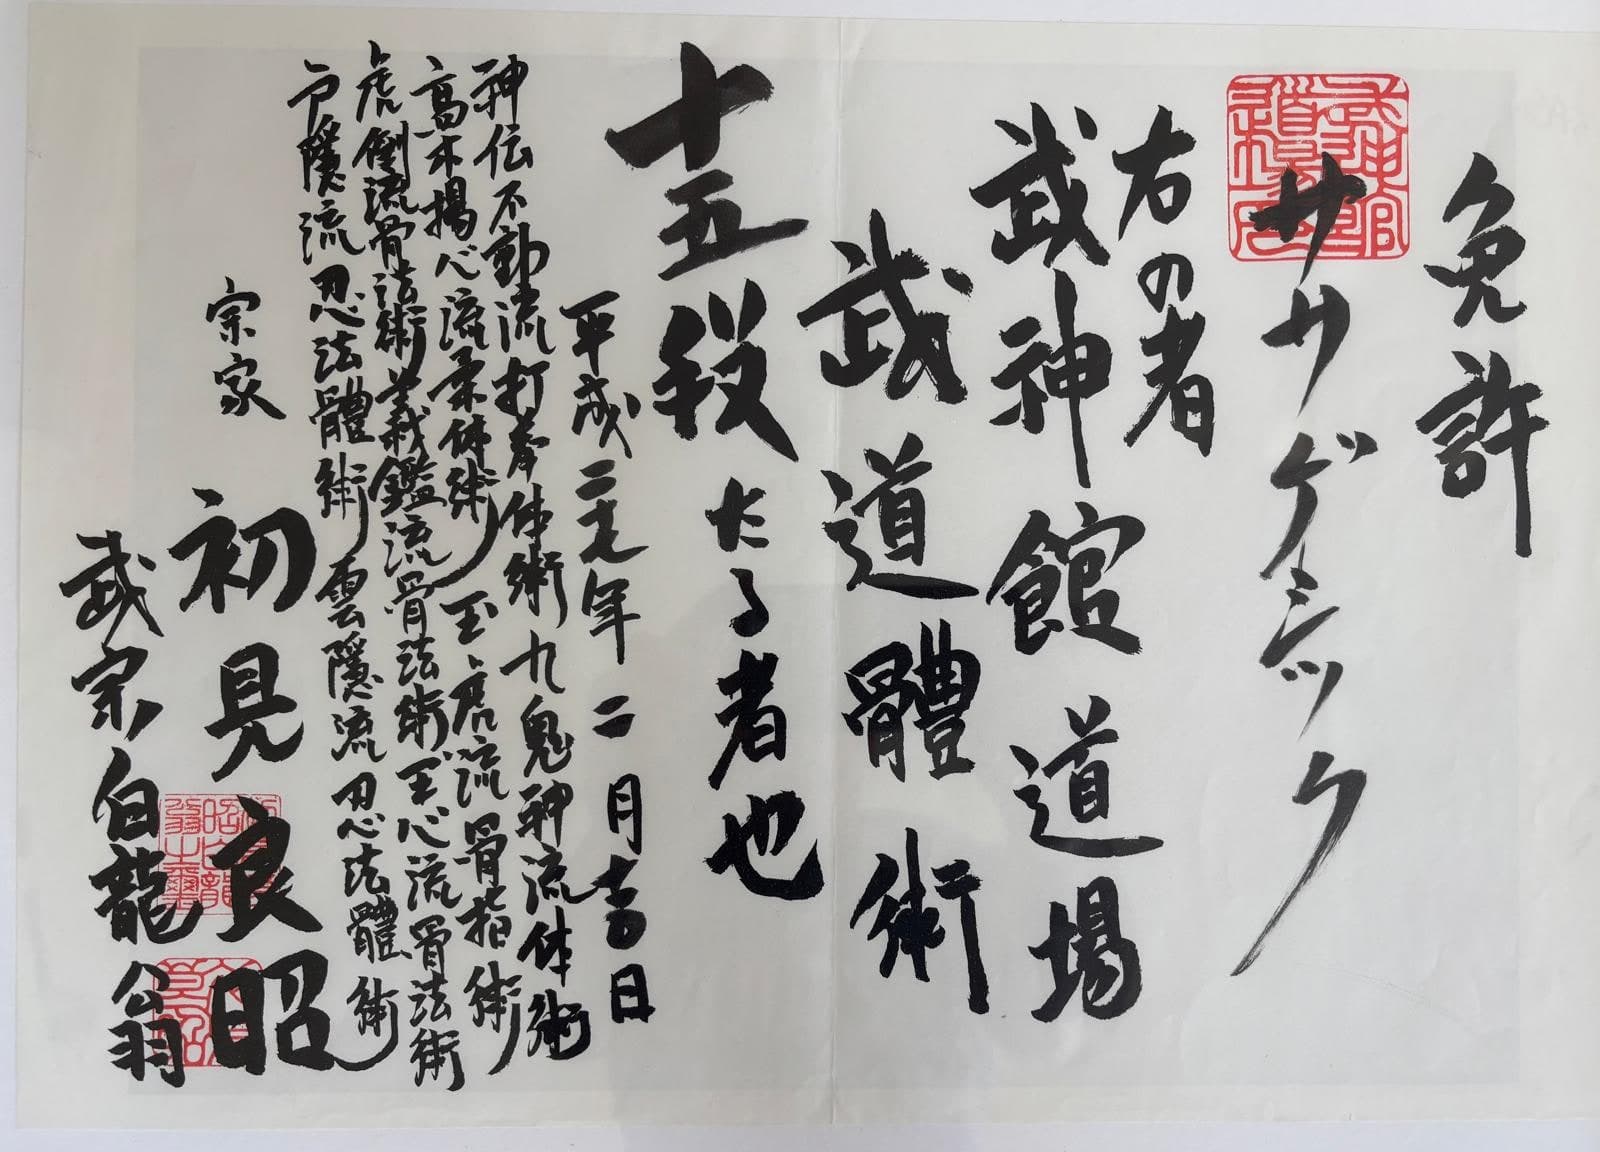 免許
ササゲーシック
右の者
武神館道場
武道體術
十五段たる者也
平成二十九年二月吉日
神伝不動流打拳体術 九鬼神流体術
高木揚心流柔体術 玉虎流骨指術
虎倒流骨法術 義鑑流骨法術 玉心流骨法術
戸隱流忍法體術 雲隱流忍法體術
宗家
初見良昭
武宗白龍翁